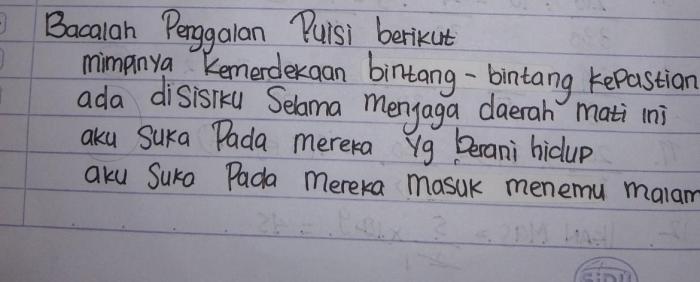 Bacalah Penggalan Puisi berikut
mimpinya kemerdekaan bintang - bintang kepastian
ada disisiku Selama menjaga daerah mati ini
aku Suka Pada mereka yg berani hidup
aku Suka Pada mereka masuk menemu malam
SIDU